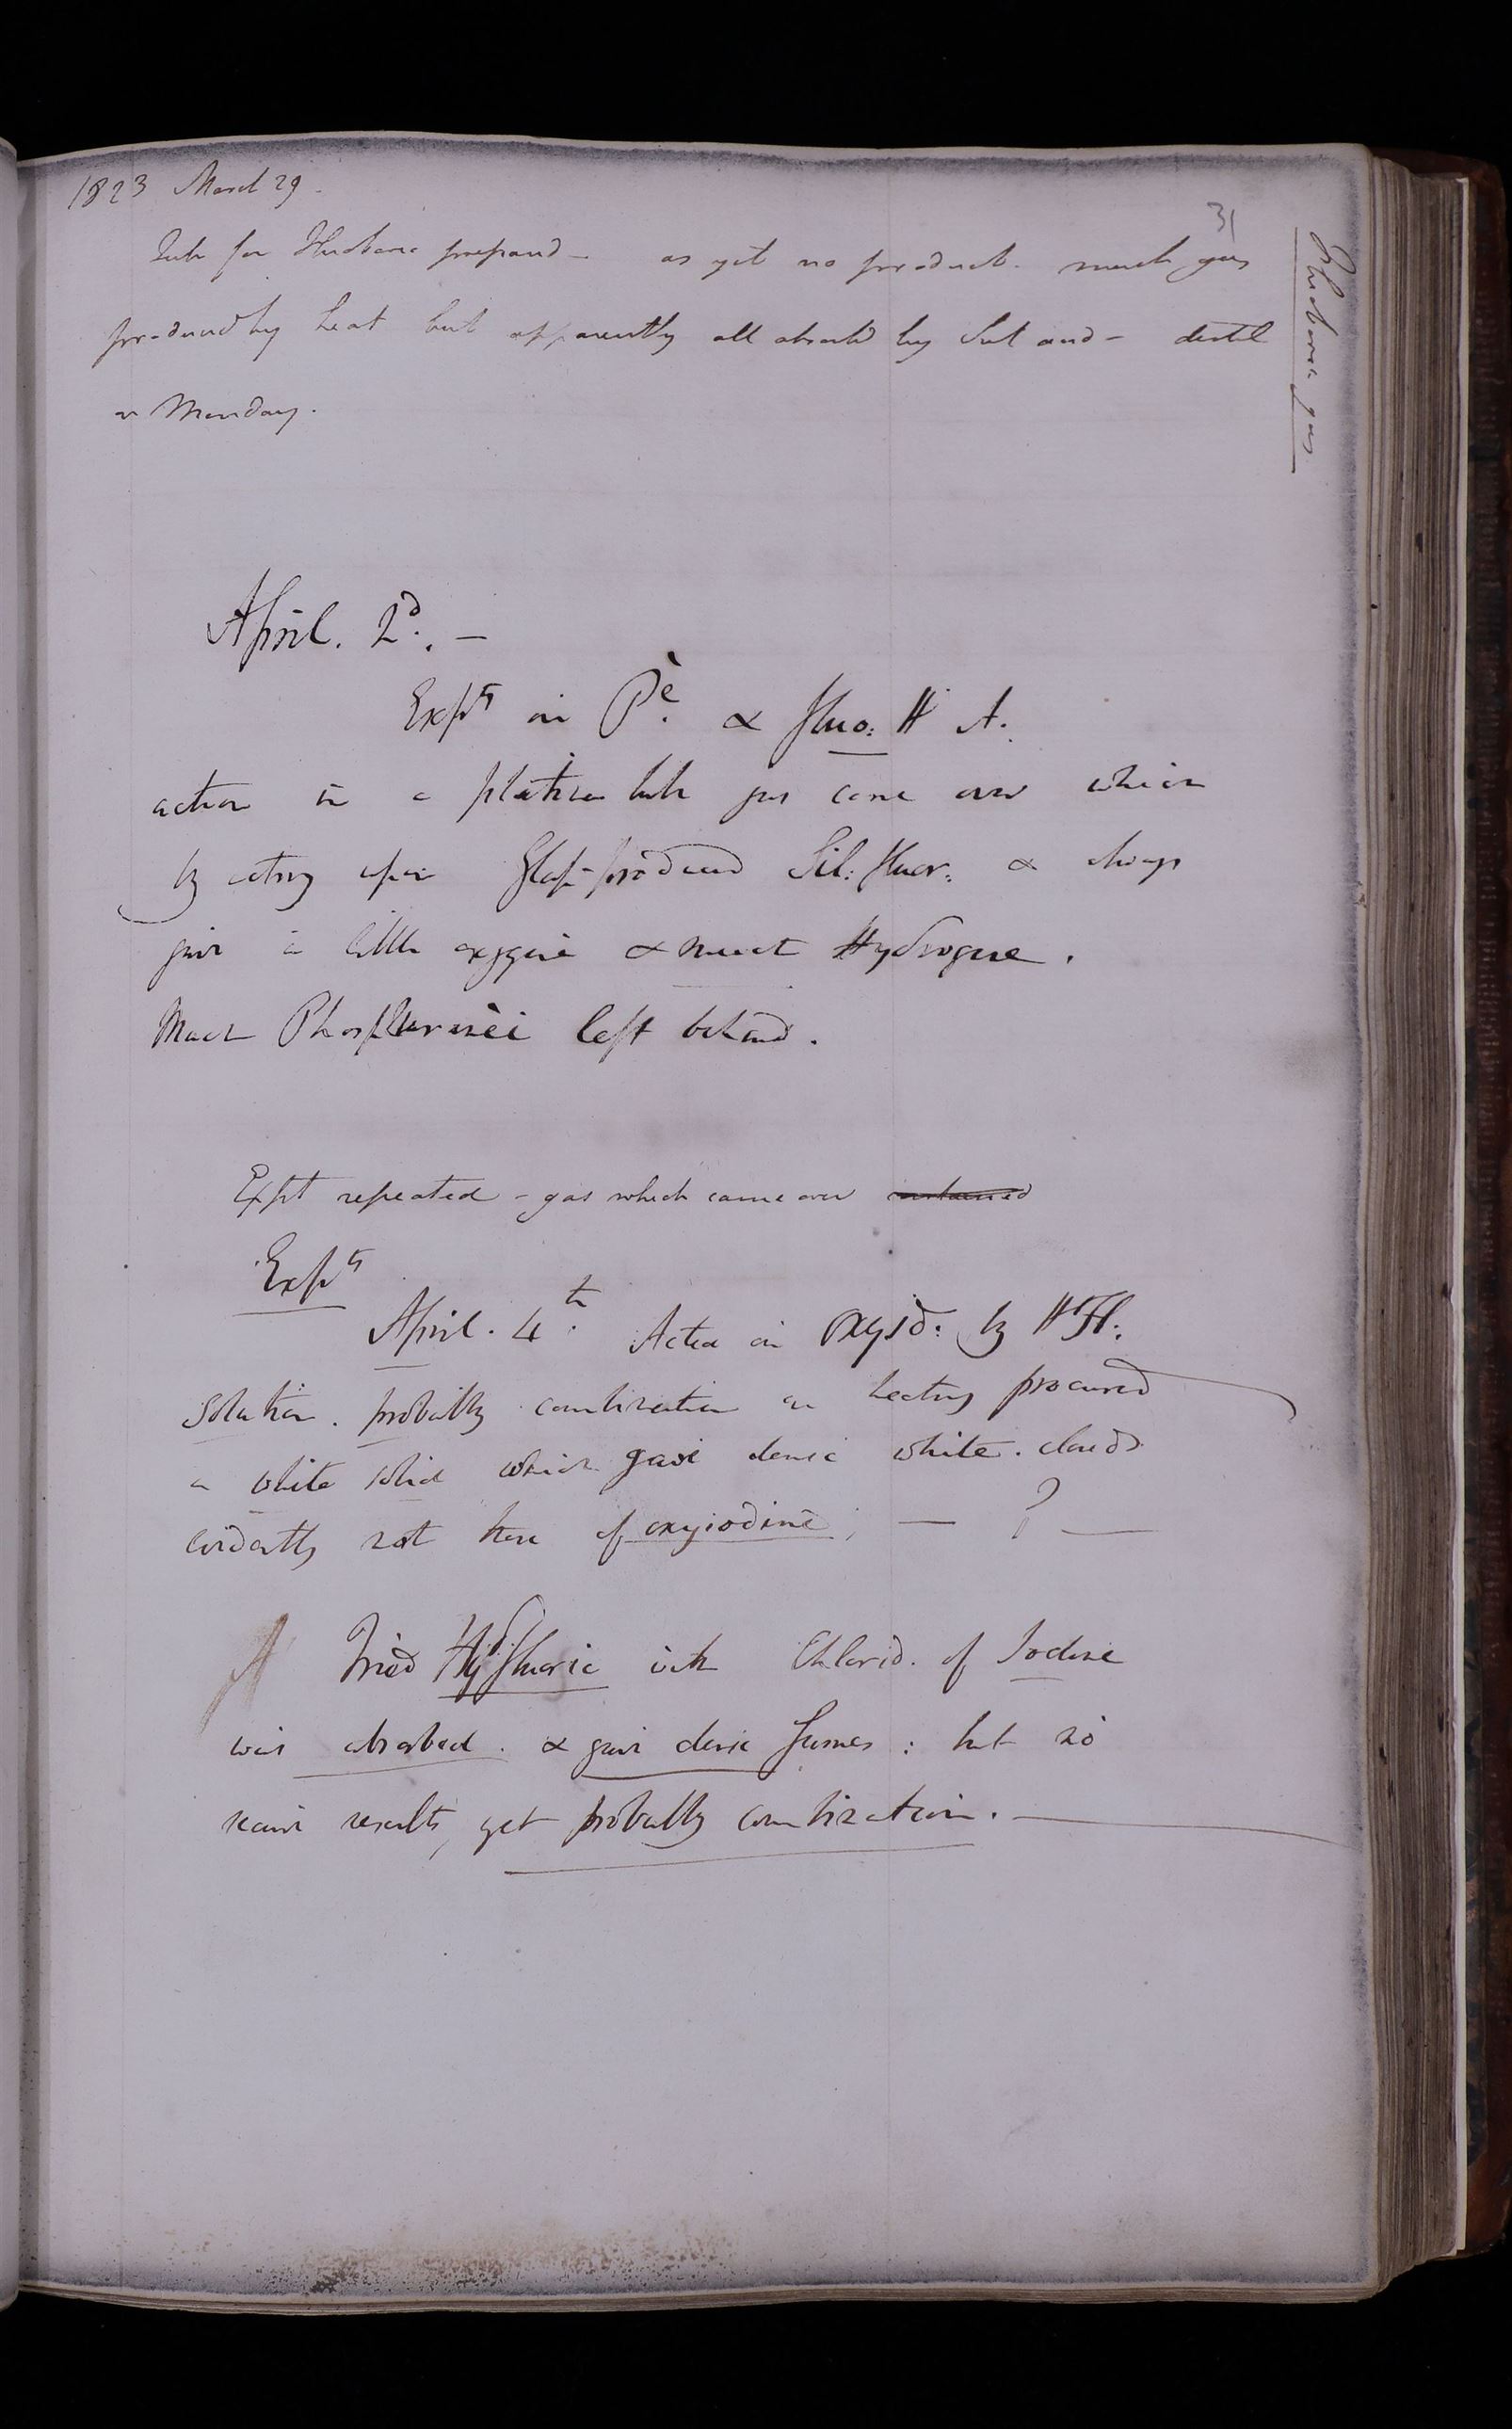 31
1823 March 29.
Tube for Fluoboric prepared - as yet no product. much gas
produced by heat but apparently all absorbd by Sul acid - distil
on Monday.
Fluoboric gas
April. 2d. -
Expts on Pe. & fluo: H A.
action in a platina tube gas came over which
by acting upon Glass produced Sil: fluor: & always
gave a little oxygene & much Hydrogene.
Much Phosphorus left behind.
Expt repeated - gas which came over contained
Expts
April. 4th. Acted on Oxyiod: by H Fl:
Solution. probably combination on heating procured
a white solid which gave dense white. clouds
evidently not those of oxyiodine; — ? —
Tried Hyd fluoric with Chlorid. of Iodine
was absorbed. & gave dense fumes: but no
results, yet probably combination. —